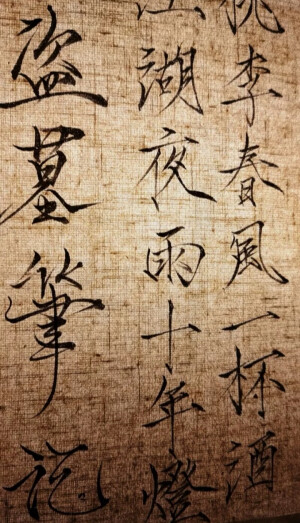 桃李春風一杯酒
江湖夜雨十年燈
盜墓筆記